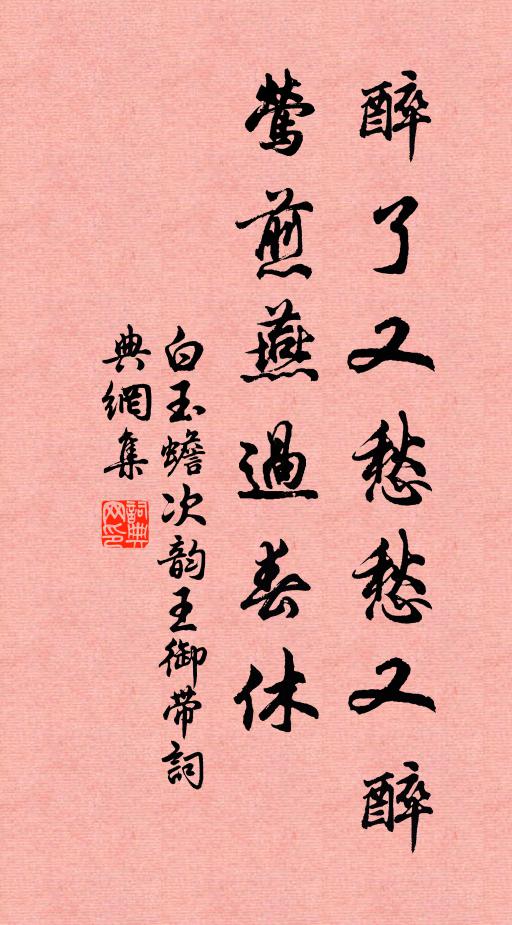 醉了又愁愁又醉
鶯煎燕過春休
白玉蟾次韵王御帶詞
典網集
詞典网印